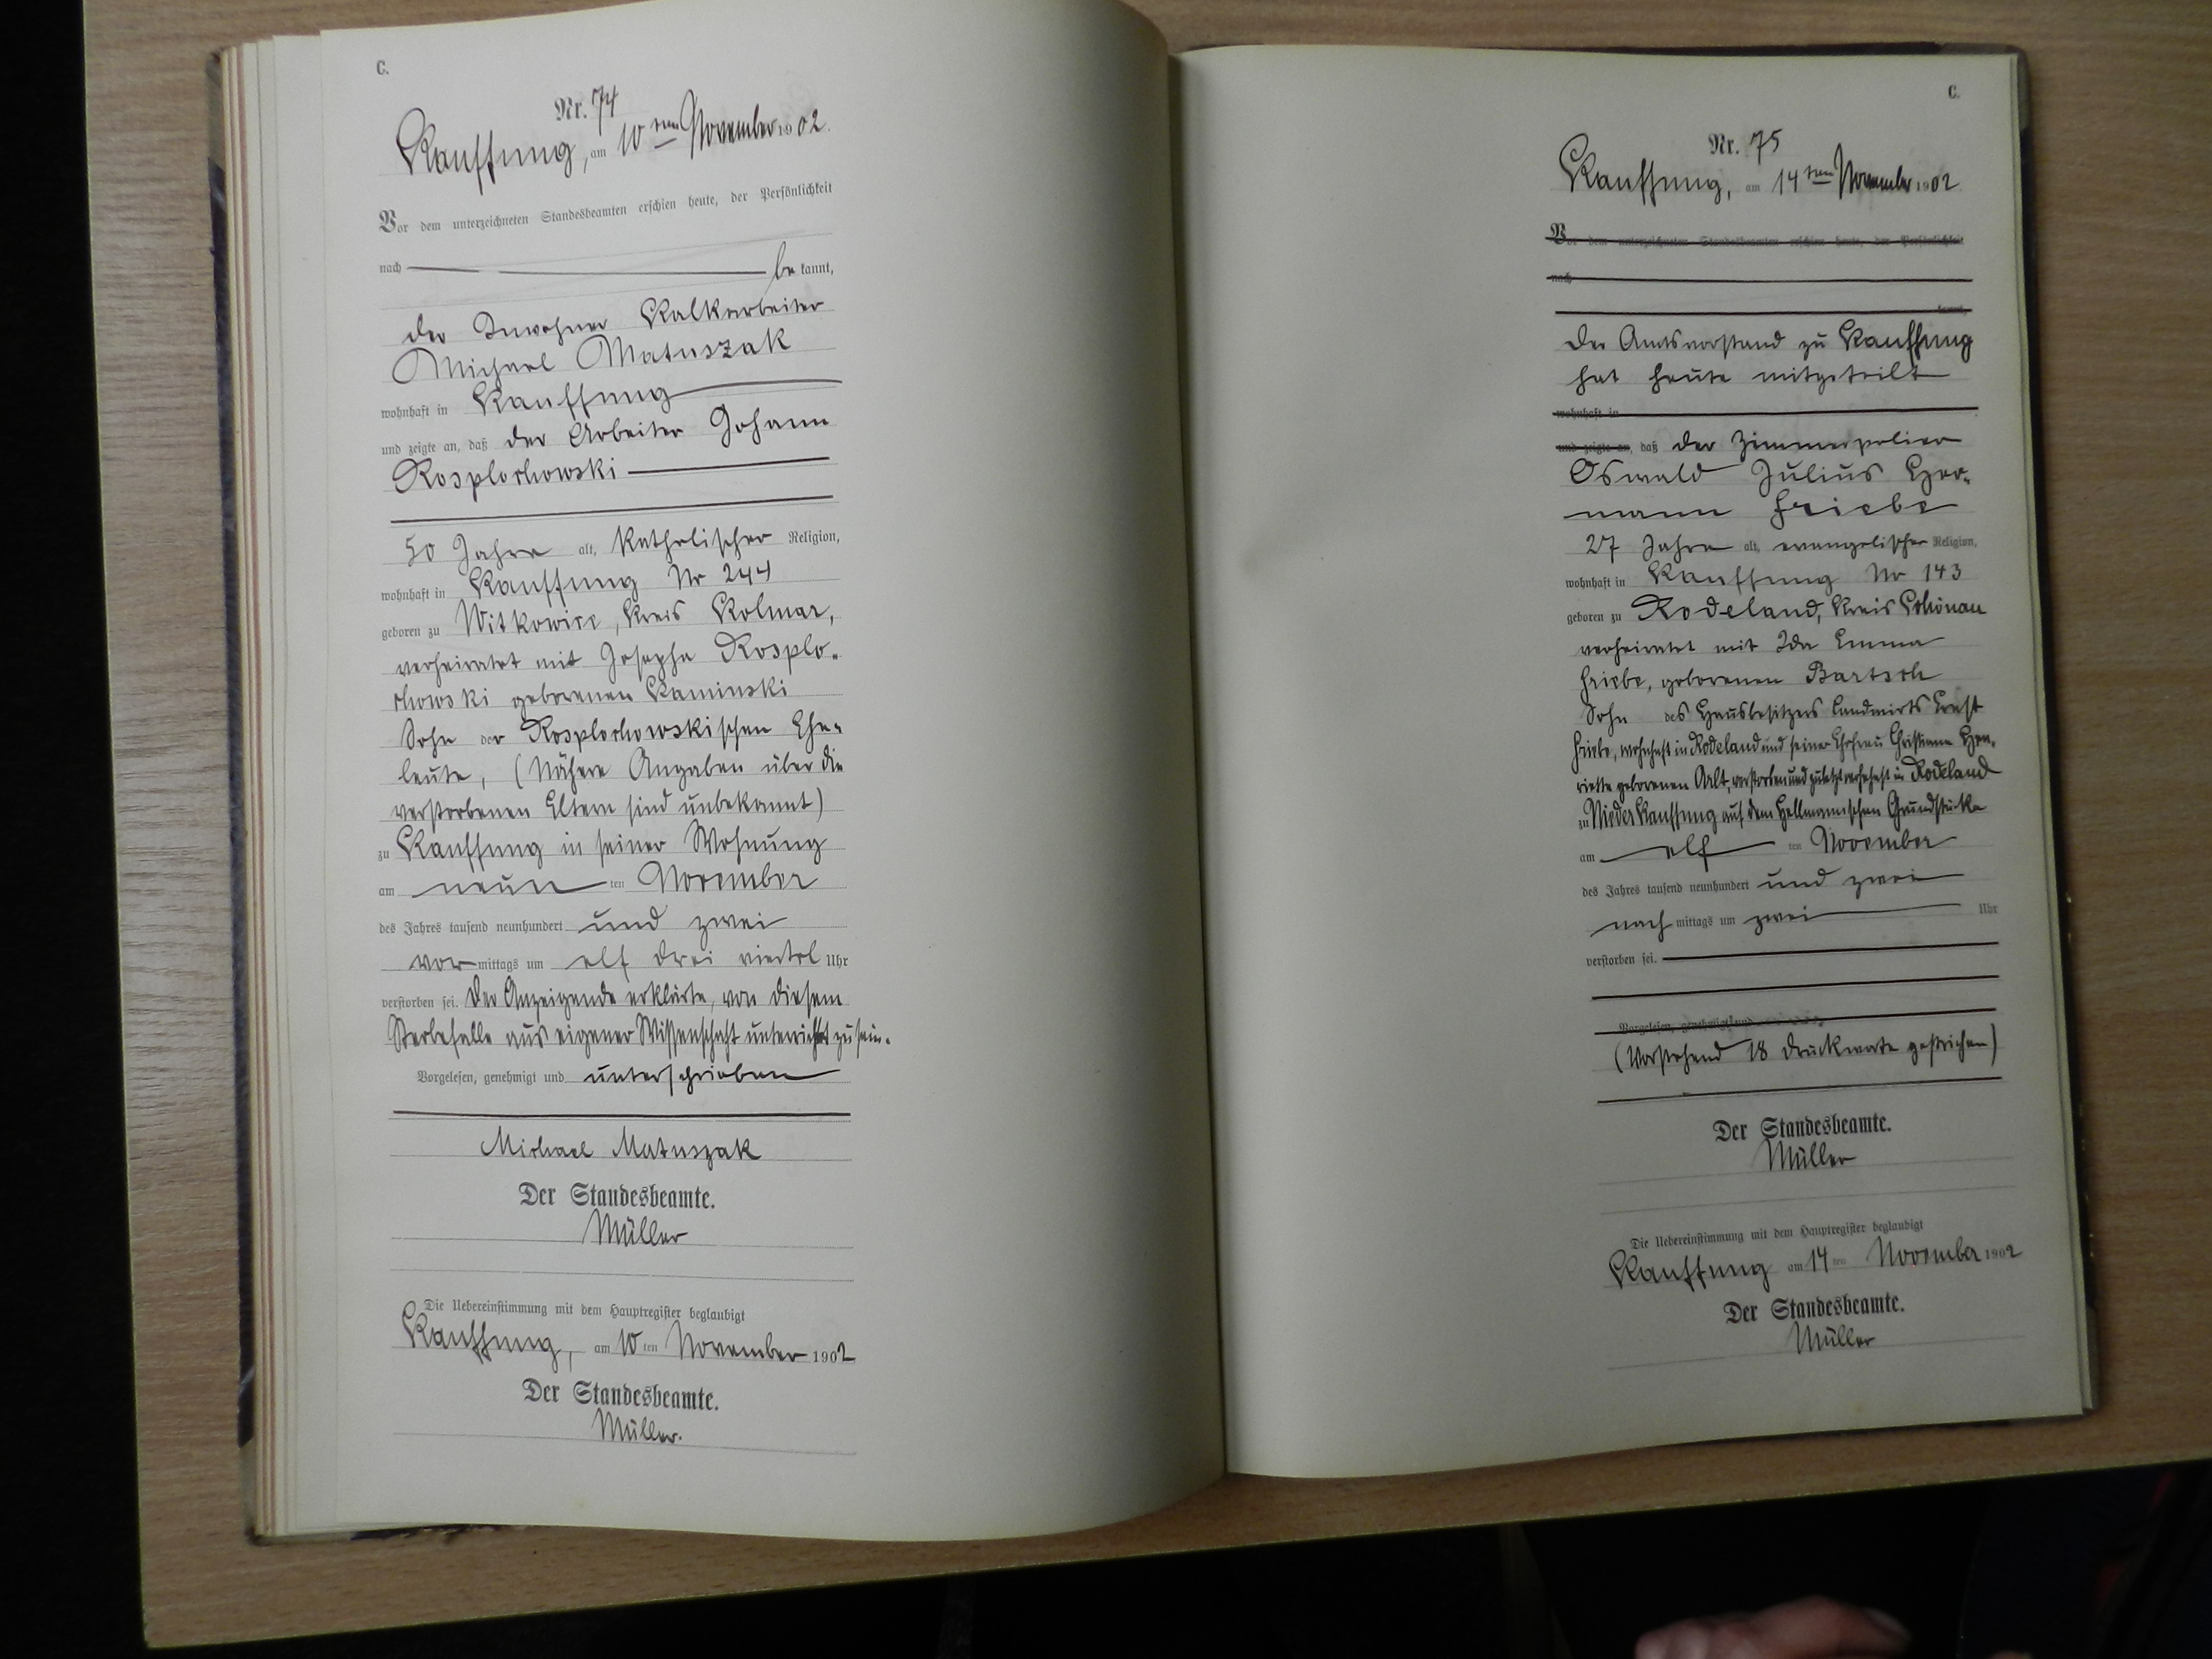 C.
Nr. 74
Kauffung, am 10ten November 1902.
Vor dem unterzeichneten Standesbeamten erschien heute, der Persönlichkeit
nach be kannt,
der Inwohner Kalkarbeiter
Michael Matuszak
wohnhaft in Kauffung
und zeigte an, daß der Arbeiter Johann
Rosplochowski
50 Jahre alt, katholischer Religion,
wohnhaft in Kauffung Nr 244
geboren zu Witkowice, Kreis Kolmar,
verheiratet mit Josepha Rosplo-
chowski geborenen Kaminski
Sohn der Rosplochowskischen Ehe-
leute, (Nähere Angaben über die
verstorbenen Eltern sind unbekannt)
zu Kauffung in seiner Wohnung
am neun ten November
des Jahres tausend neunhundert und zwei
vor mittags um elf drei viertel Uhr
verstorben sei. Der Anzeigende erklärte, von diesem
Sterbefalle aus eigener Wissenschaft unterrichtet zu sein.
Vorgelesen, genehmigt und unterschrieben
Michael Matuszak
Der Standesbeamte.
Müller
Die Uebereinstimmung mit dem Hauptregister beglaubigt
Kauffung, am 10 ten November 1902
Der Standesbeamte.
Müller.
C.
Nr. 75
Kauffung, am 14ten November 1902.
Vor dem unterzeichneten Standesbeamten erschien heute, der Persönlichkeit
nach
kannt,
Der Amtsvorstand zu Kauffung
hat heute mitgeteilt
wohnhaft in
und zeigte an, daß der Zimmerpolier
Oswald Julius Her-
mann Friebe
27 Jahre alt, evangelischer Religion,
wohnhaft in Kauffung Nr 143
geboren zu Rodeland, Kreis Schönau
verheiratet mit Ida Emma
Friebe, geborenen Bartsch
Sohn des Hausbesitzers Landwirts Ernst
Friebe, wohnhaft in Rodeland und seiner Ehefrau Christiane Hen-
riette geborenen Aalt, verstorben und zuletzt wohnhaft in Rodeland
zu Nieder Kauffung auf dem Hellmannschen Grundstücke
am elf ten November
des Jahres tausend neunhundert und zwei
nach mittags um zwei Uhr
verstorben sei.
Vorgelesen, genehmigt und
(Vorstehend 18 Druckworte gestrichen)
Der Standesbeamte.
Müller
Die Uebereinstimmung mit dem Hauptregister beglaubigt
Kauffung am 14 ten November 1902
Der Standesbeamte.
Müller